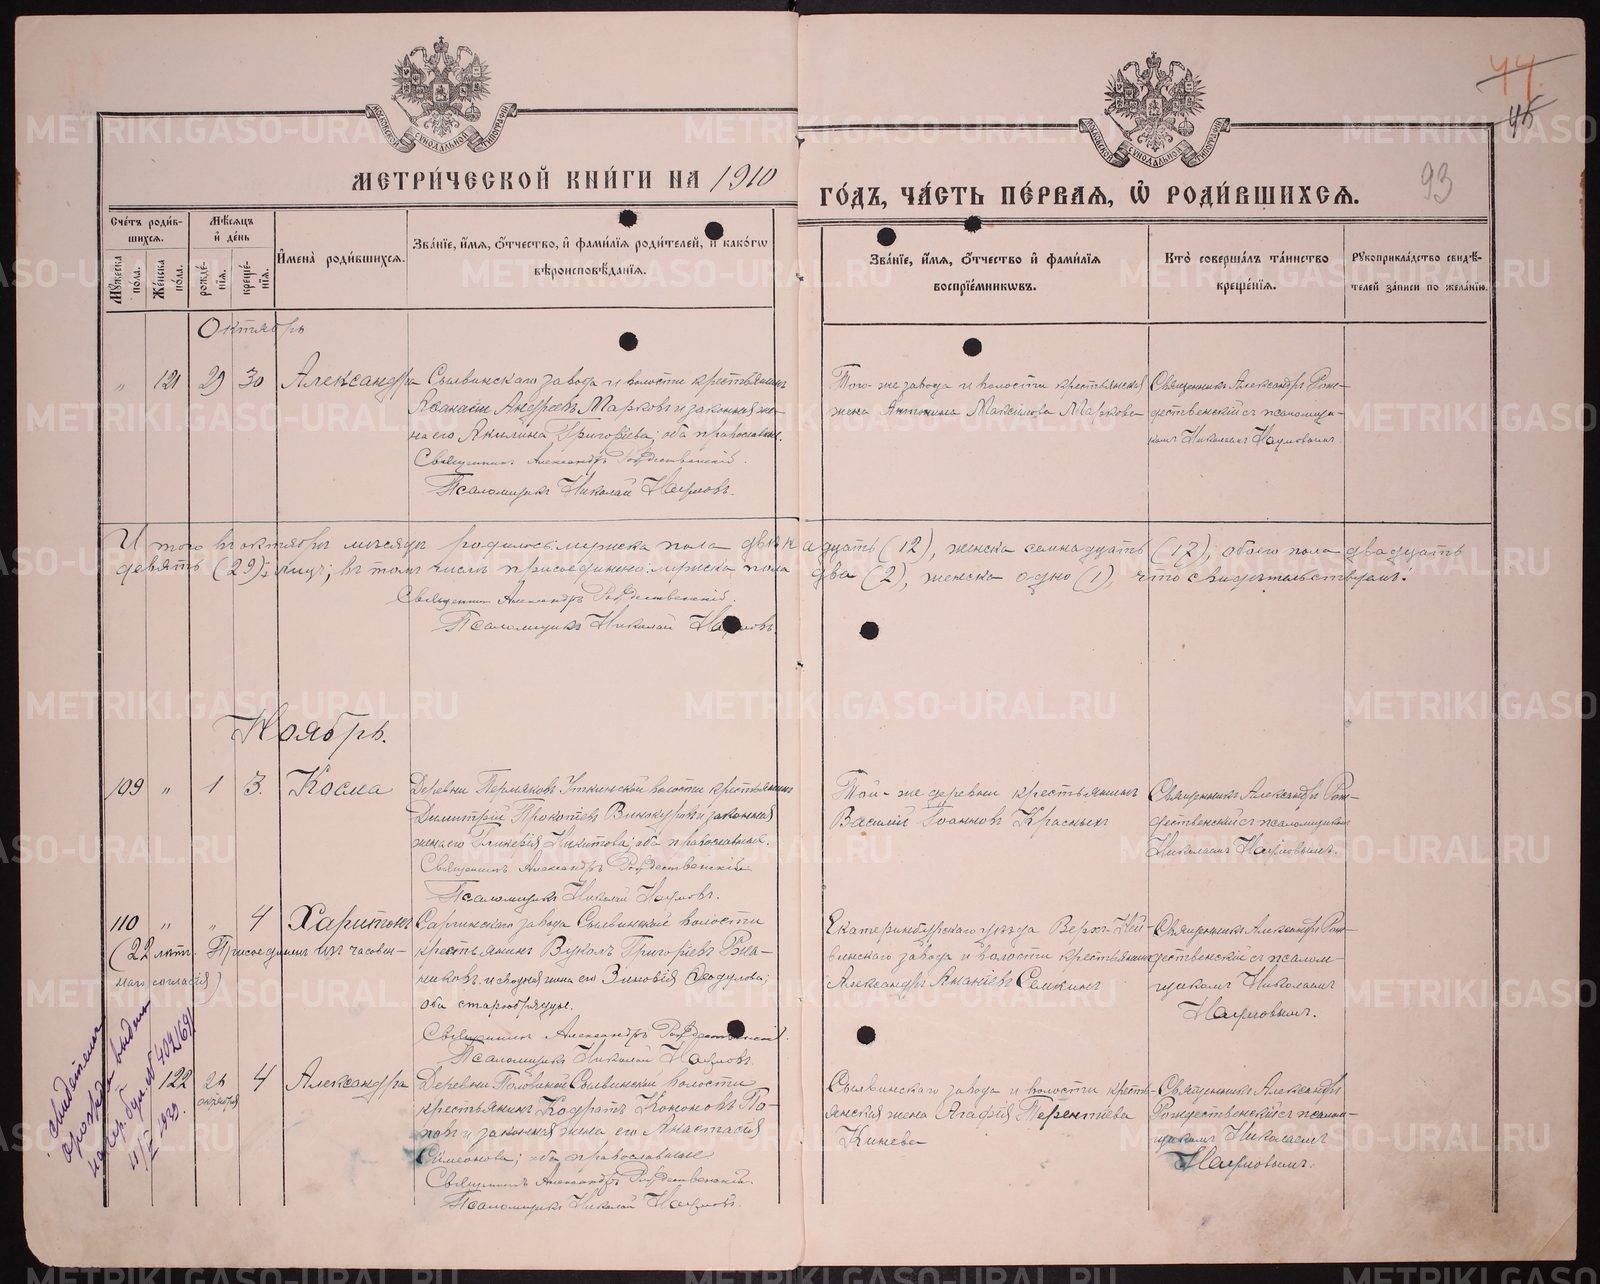 44.
45
93
МЕТРИ́ЧЕСКОЙ КНИ́ГИ НА 1910 ГО́ДЪ, ЧА́СТЬ ПЕ́РВАЯ, Ѡ РОДИ́ВШИХСЯ.
Сче́тъ роди́в-
шихся.
Мꙋ́жеска пола.
Же́нска пола.
Мѣ́сяцъ
и҆ де́нь
рожде́-
нїя.
креще́-
нїя.
И҆мена̀ роди́вшихся.
Зва́нїе, и҆́мя, ѻ҆́тчество, и҆ фами́лїя роди́телей, и҆ како́гѡ
вѣроисповѣ́данїя.
Зва́нїе, и҆́мя, ѻ҆́тчество и҆ фами́лїя
воспрїе́мникѡвъ.
Кто̀ соверша́лъ та́инство
креще́нїя.
Рꙋкоприкла́дство свидѣ́-
телей за́писи по жела́нїю.
Октябрь
„ 121 29 30 Александра
Сылвинскаго завода и волости крестьянинъ
Андреевъ Марковъ и законная же-
на его Акилина Григоріева, оба православные.
Священникъ Александръ Рождественскій.
Псаломщикъ Николай Наумовъ.
Того-же завода и волости крестьянская
жена Антонина Максимова Маркова
Священникъ Александръ Рож-
дественскій съ псаломщи-
комъ Николаемъ Наумовымъ.
Итого въ октябрѣ мѣсяцѣ родилось: мужска пола двѣнадцать (12), женска семнадцать (17), обоего пола двадцать
девять (29); въ томъ числѣ присоединено: мужска пола два (2), женска одно (1), что свидѣтельствуемъ.
Священникъ Александръ Рождественскій.
Псаломщикъ Николай Наумовъ.
Ноябрь.
109 „ 1 3. Косма
Деревни Пермяковъ Уткинской волости крестьянинъ
Димитрій Прокопіевъ Винокуровъ и законная
жена его Гликерія Никитова; оба православные.
Священникъ Александръ Рождественскій
Псаломщикъ Николай Наумовъ.
Той-же деревни крестьянинъ
Василій Іоанновъ Красныхъ
Священникъ Александръ Рож-
дественскій съ псаломщикомъ
Николаемъ Наумовымъ.
110 „ „ 4 Харитонъ
(22 лѣтъ. Присоединенъ изъ часовен-
наго согласія)
Саргинскаго завода Сылвинской волости
крестьянинъ Вуколъ Григоріевъ
и его Зиновія Ѳеодулова;
оба старообрядцы.
Священникъ Александръ Рождественскій.
Псаломщикъ Николай Наумовъ.
Екатеринбургскаго уѣзда Верхъ-Ней-
винскаго завода и волости крестьянинъ
Александръ Ананіевъ Семкинъ
Священникъ Александръ Рож-
дественскій съ псалом-
щикомъ Николаемъ
Наумовымъ.
122 26 октября 4 Александра
Деревни Сылвинской волости
крестьянинъ Кодратъ Кононовъ По-
повъ и законная жена его Анастасія
Симеонова; оба православные
Священникъ Александръ Рождественскій.
Псаломщикъ Николай Наумовъ.
Сылвинскаго завода и волости кресть-
янская жена Агафія Терентіева
Кинева
Священникъ Александръ
Рождественскій съ псалом-
щикомъ Николаемъ
Наумовымъ.